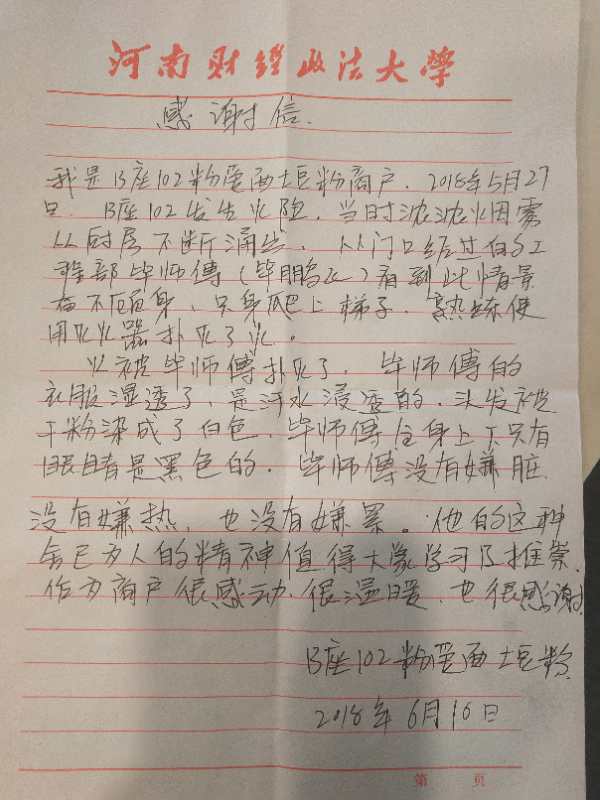 河南财经政法大学
感谢信.
我是B座102粉覓西土豆粉商户. 2018年5月27
日. B座102发生火险, 当时浓浓烟雾
从厨房不断涌出, 从门口经过的工
程部毕师傅(毕鹏飞)看到此情景
奋不顾身, 只身爬上梯子. 熟练使
用灭火器扑灭了火。
火被毕师傅扑灭了. 毕师傅的
衣服湿透了, 是汗水浸透的. 头发被
干粉染成了白色. 毕师傅全身上下只有
眼睛是黑色的. 毕师傅没有嫌脏
没有嫌热, 也没有嫌累。他的这种
舍己为人的精神值得大家学习及推崇.
作为商户很感动. 很温暖, 也很感谢.
B座102粉覓西土豆粉.
2018年6月10日
第 页